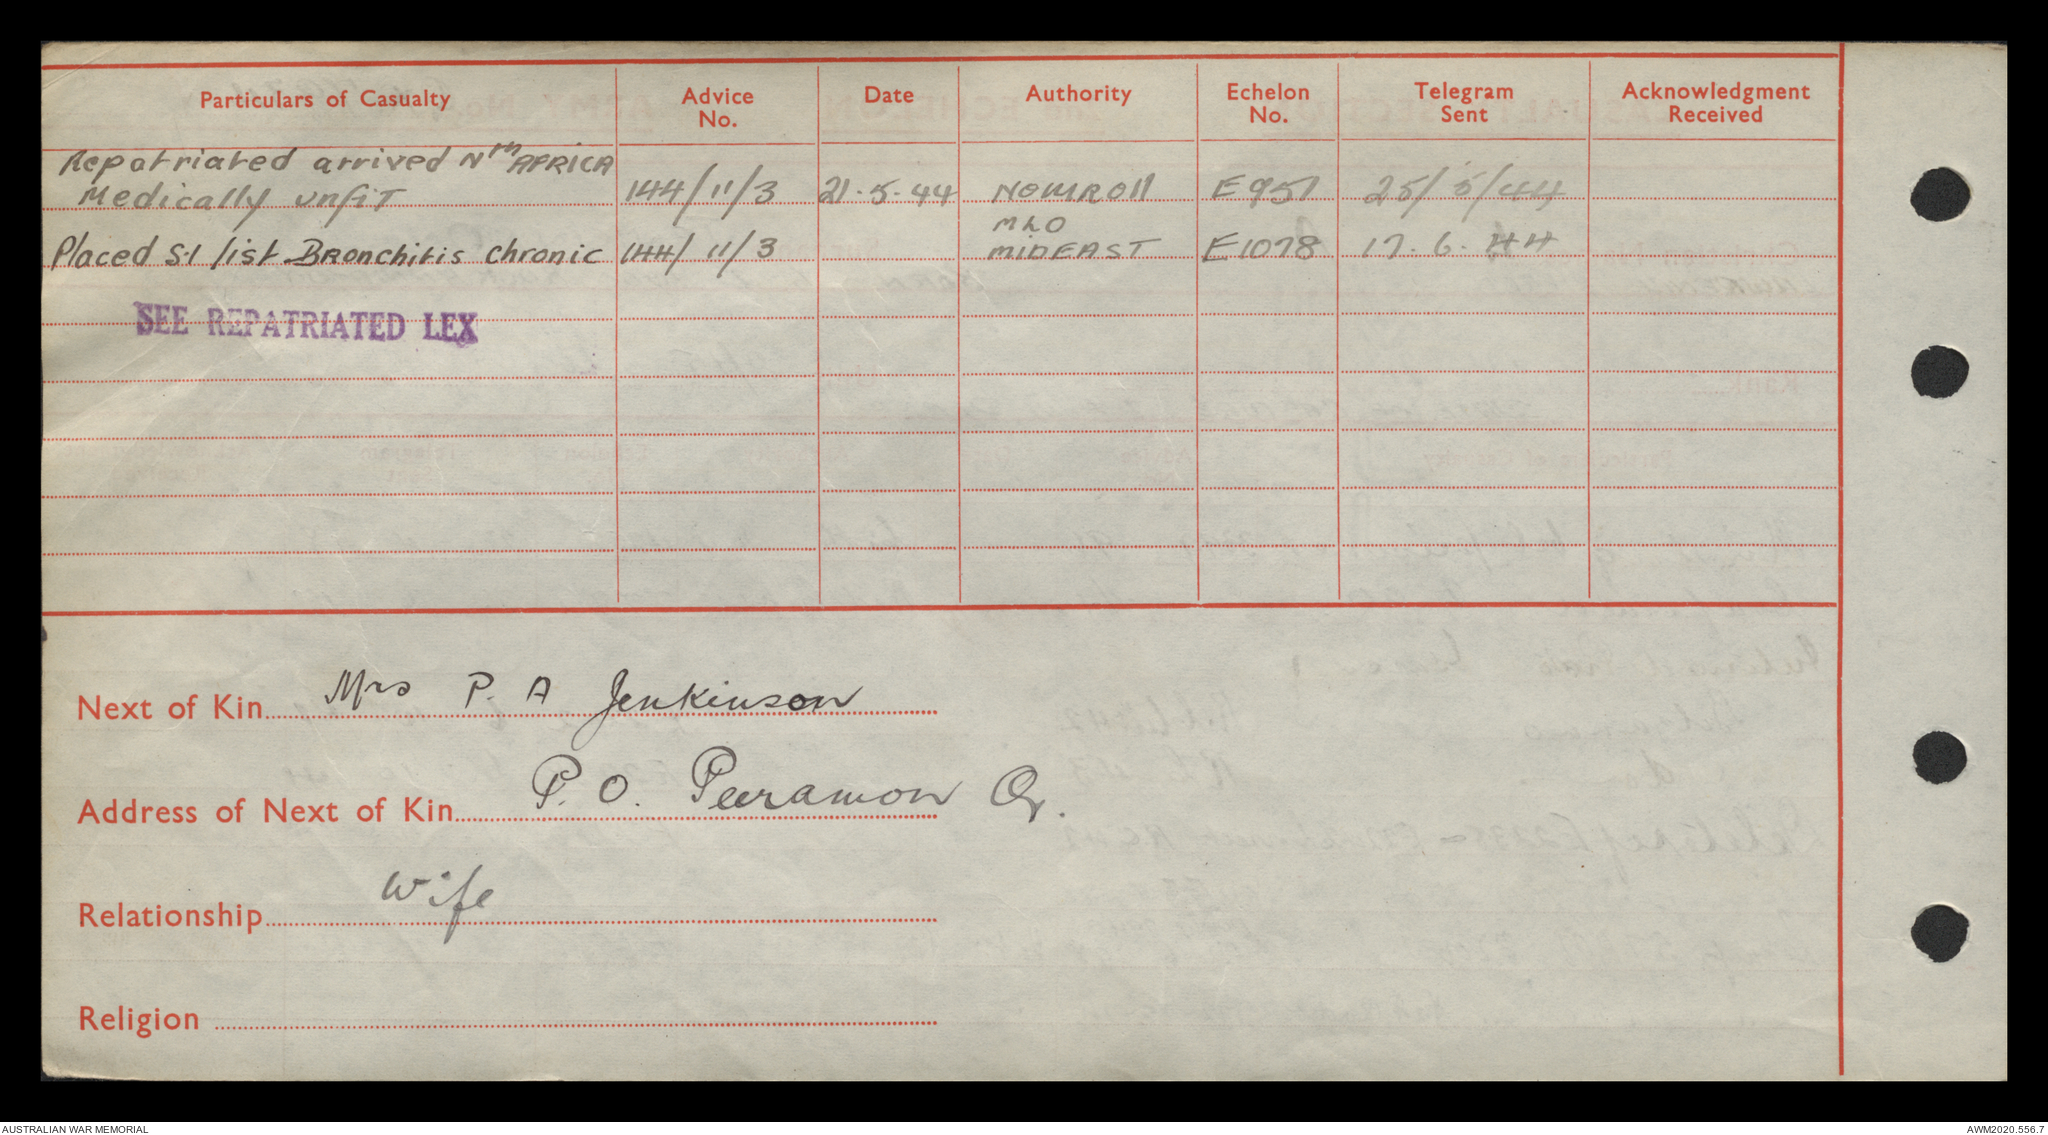 Particulars of Casualty Advice No. Date Authority Echelon No. Telegram Sent Acknowledgment Received
Repatriated arrived Nth AFRICA
Medically unfit 144/11/3 21.5.44 NOMROll E951 25/5/44
Placed S.I list Bronchitis chronic 144/11/3 MLO MIDEAST E1078 17.6.44
SEE REPATRIATED LEX
Next of Kin Mrs P. A Jenkinson
Address of Next of Kin P. O. Peeramon Q.
Relationship Wife
Religion
AUSTRALIAN WAR MEMORIAL AWM2020.556.7